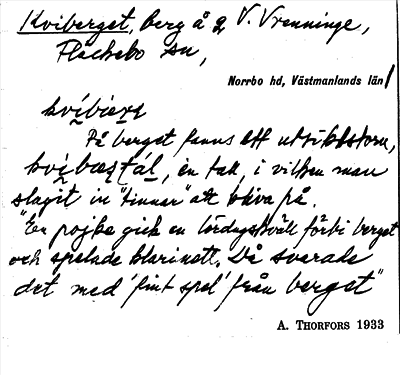 Kviberget, berg å g V. Vrenninge,
Fläckebo sn,
Norrbo hd, Västmanlands län
kvíbære
På berget fanns ett utsiktstorn,
kvíbæstál, en tall, i vilken man
slagit in "pinnar" att kliva på.
"En pojke gick en lördagskväll förbi berget
och spelade klarinett. Då svarade
det med 'fint spel' från berget"
A. THORFORS 1933